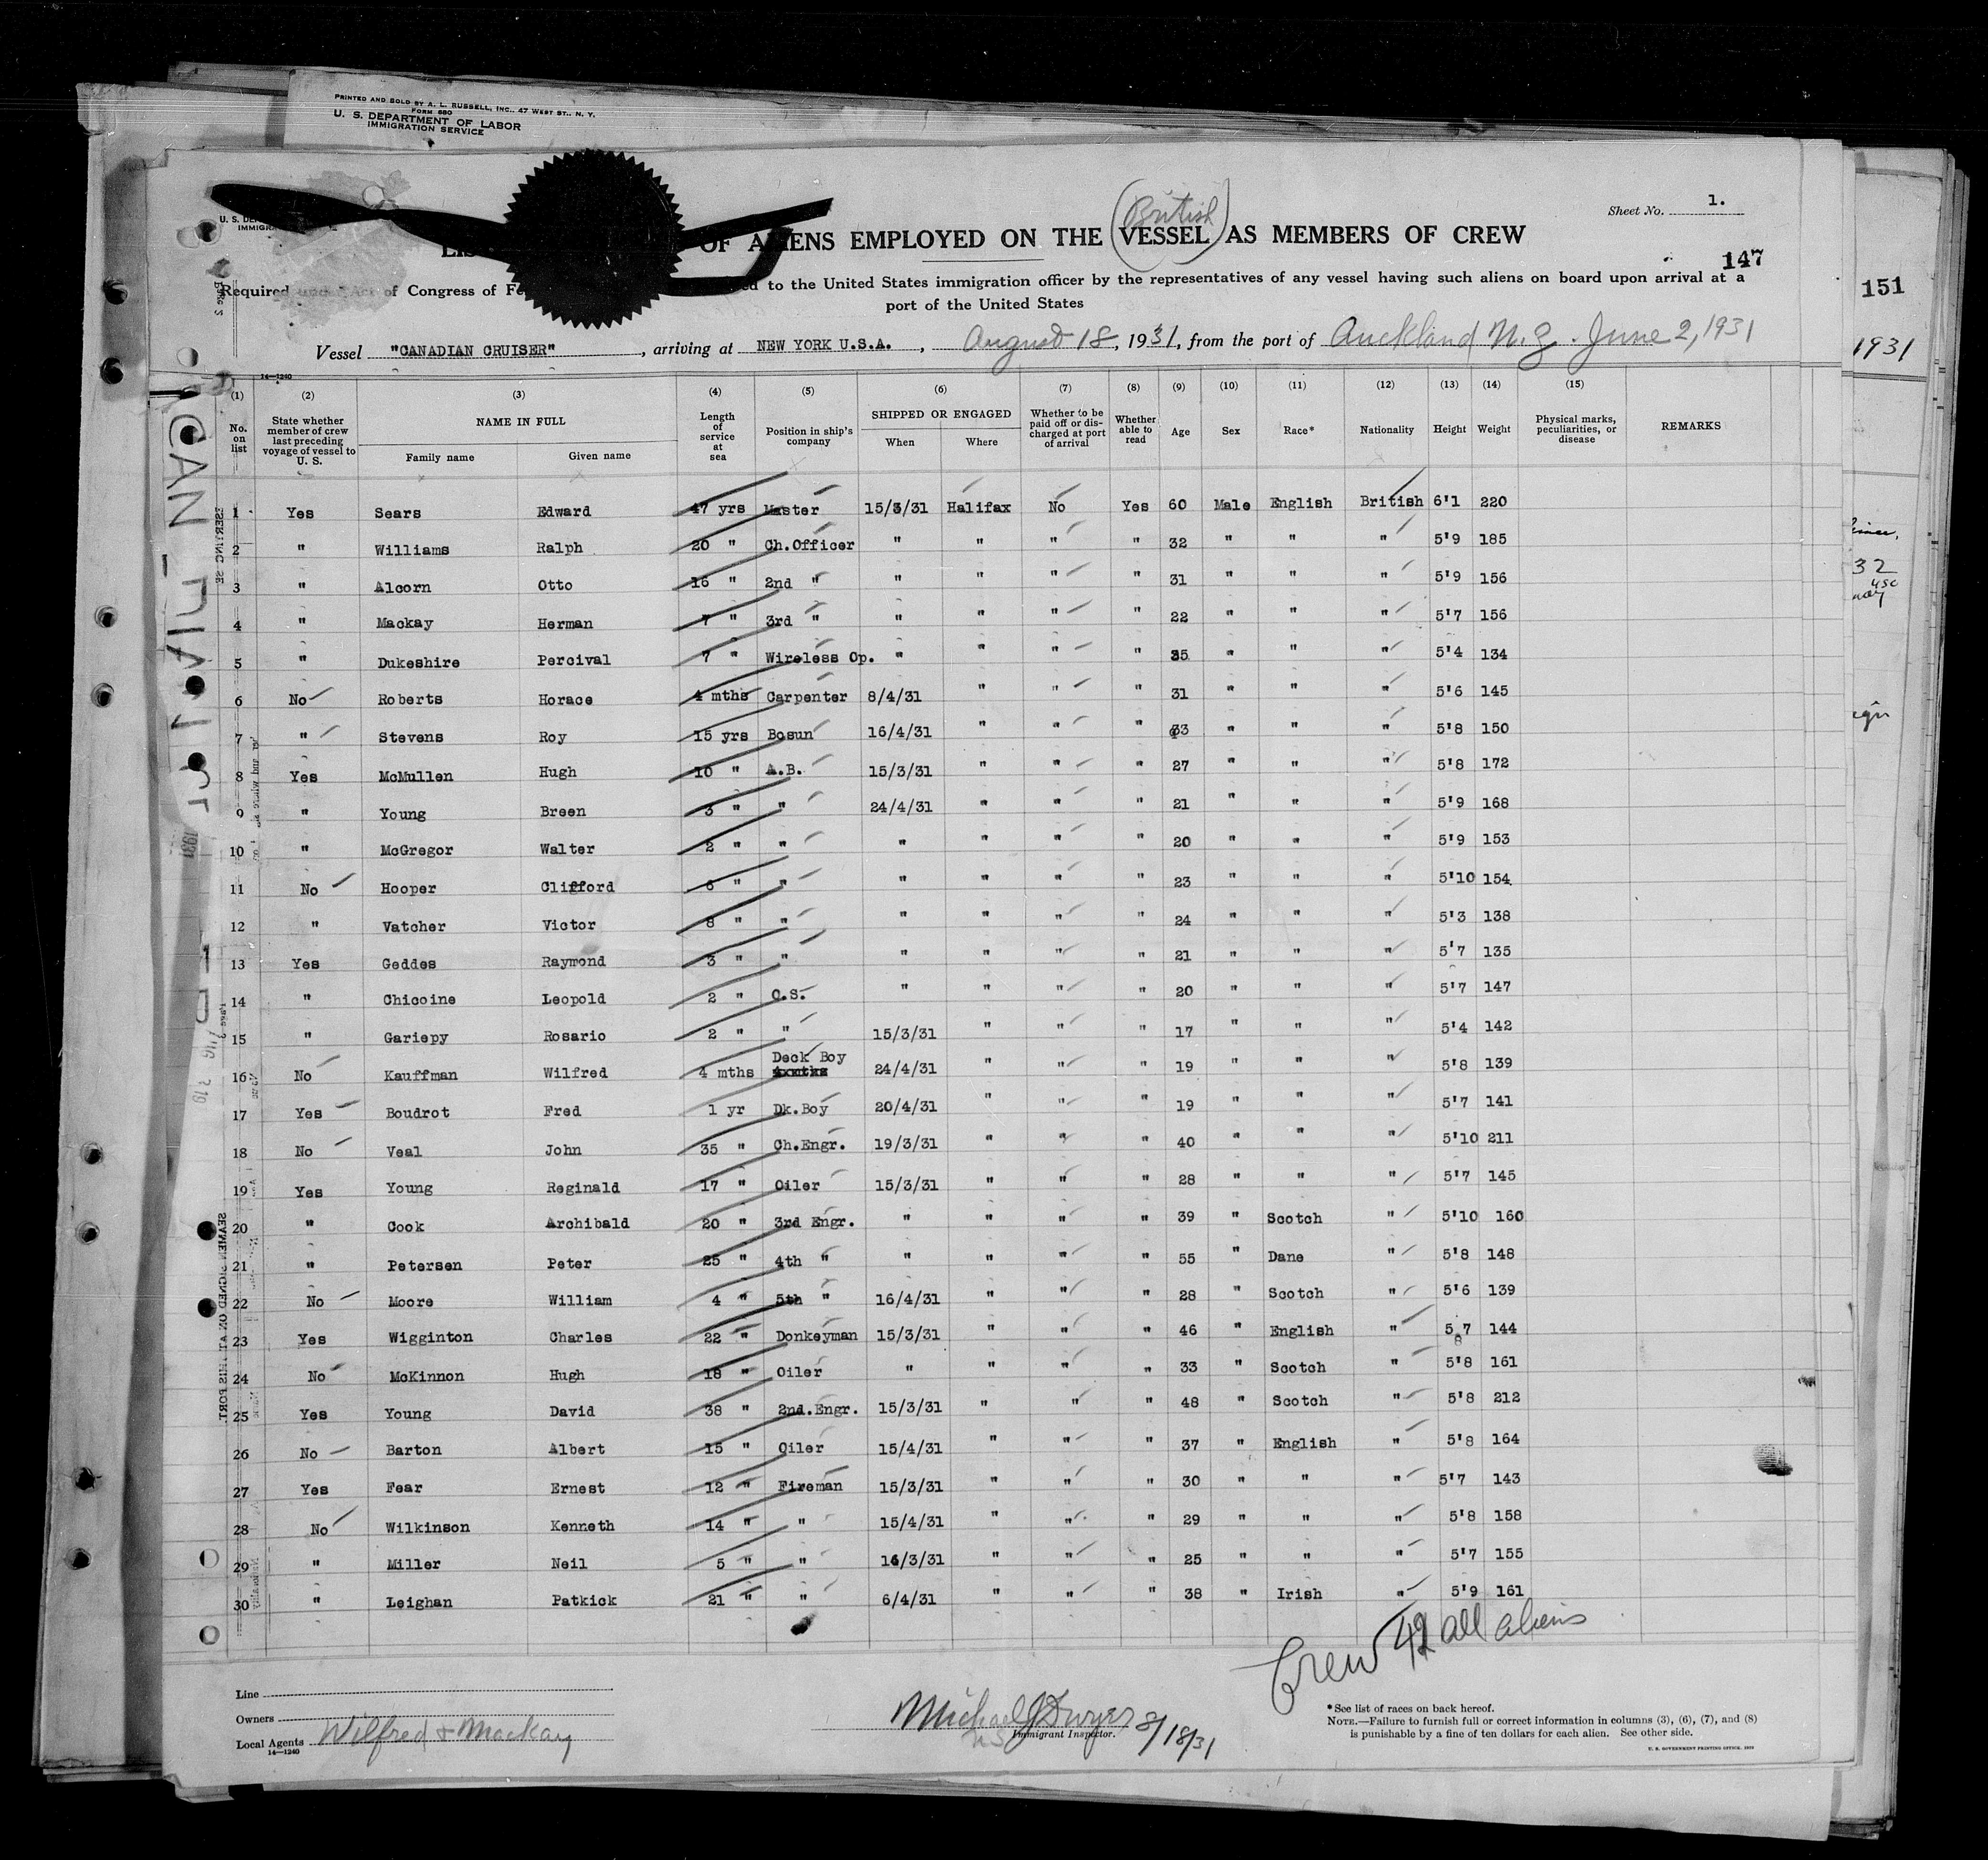 PRINTED AND SOLD BY A. L. RUSSELL, INC., 47 WEST ST., N. Y.
FORM 680
U. S. DEPARTMENT OF LABOR
IMMIGRATION SERVICE
Sheet No. 1.
(British)
OF ALIENS EMPLOYED ON THE VESSEL AS MEMBERS OF CREW
147
151
Required under Act of Congress of to the United States immigration officer by the representatives of any vessel having such aliens on board upon arrival at a
port of the United States
Vessel "CANADIAN CRUISER", arriving at NEW YORK U.S.A., August 18, 1931, from the port of Auckland N.Z. June 2, 1931
1931
14—1240
(1) (2) (3) (4) (5) (6) (7) (8) (9) (10) (11) (12) (13) (14) (15)
No. on list | State whether member of crew last preceding voyage of vessel to U. S. | NAME IN FULL | Family name | Given name | Length of service at sea | Position in ship's company | SHIPPED OR ENGAGED | When | Where | Whether to be paid off or discharged at port of arrival | Whether able to read | Age | Sex | Race* | Nationality | Height | Weight | Physical marks, peculiarities, or disease | REMARKS
1 Yes Sears Edward 47 yrs Master 15/3/31 Halifax No Yes 60 Male English British 6'1 220
2 " Williams Ralph 20 " Ch.Officer " " " " 32 " " " 5'9 185
3 " Alcorn Otto 16 " 2nd " " " " " 31 " " " 5'9 156
4 " Mackay Herman 7 " 3rd " " " " " 22 " " " 5'7 156
5 " Dukeshire Percival 7 " Wireless Op. " " " " 35 " " " 5'4 134
6 No Roberts Horace 4 mths Carpenter 8/4/31 " " " 31 " " " 5'6 145
7 " Stevens Roy 15 yrs Bosun 16/4/31 " " " 33 " " " 5'8 150
8 Yes McMullen Hugh 10 " A.B. 15/3/31 " " " 27 " " " 5'8 172
9 " Young Breen 3 " " 24/4/31 " " " 21 " " " 5'9 168
10 " McGregor Walter 2 " " " " " " 20 " " " 5'9 153
11 No Hooper Clifford 6 " " " " " " 23 " " " 5'10 154
12 " Vatcher Victor 8 " " " " " " 24 " " " 5'3 138
13 Yes Geddes Raymond 3 " " " " " " 21 " " " 5'7 135
14 " Chicoine Leopold 2 " O.S. " " " " 20 " " " 5'7 147
15 " Gariepy Rosario 2 " " 15/3/31 " " " 17 " " " 5'4 142
16 No Kauffman Wilfred 4 mths Deck Boy 24/4/31 " " " 19 " " " 5'8 139
17 Yes Boudrot Fred 1 yr Dk.Boy 20/4/31 " " " 19 " " " 5'7 141
18 No Veal John 35 " Ch.Engr. 19/3/31 " " " 40 " " " 5'10 211
19 Yes Young Reginald 17 " Oiler 15/3/31 " " " 28 " " " 5'7 145
20 " Cook Archibald 20 " 3rd Engr. " " " " 39 " Scotch " 5'10 160
21 " Petersen Peter 25 " 4th " " " " " 55 " Dane " 5'8 148
22 No Moore William 4 " 5th " 16/4/31 " " " 28 " Scotch " 5'6 139
23 Yes Wigginton Charles 22 " Donkeyman 15/3/31 " " " 46 " English " 5 7 144
24 No McKinnon Hugh 18 " Oiler " " " " 33 " Scotch " 5'8 161
25 Yes Young David 38 " 2nd.Engr. 15/3/31 " " " 48 " Scotch " 5'8 212
26 No Barton Albert 15 " Oiler 15/4/31 " " " 37 " English " 5'8 164
27 Yes Fear Ernest 12 " Fireman 15/3/31 " " " 30 " " " 5'7 143
28 No Wilkinson Kenneth 14 " " 15/4/31 " " " 29 " " " 5'8 158
29 " Miller Neil 5 " " 14/3/31 " " " 25 " " " 5'7 155
30 " Leighan Patkick 21 " " 6/4/31 " " " 38 " Irish " 5'9 161
Crew 42 all aliens
Line
Owners
Local Agents Wilfred & Mackay
14—1240
Michael J Dwyer 8/18/31
Immigrant Inspector.
*See list of races on back hereof.
NOTE.—Failure to furnish full or correct information in columns (3), (6), (7), and (8)
is punishable by a fine of ten dollars for each alien. See other side.
U. S. GOVERNMENT PRINTING OFFICE